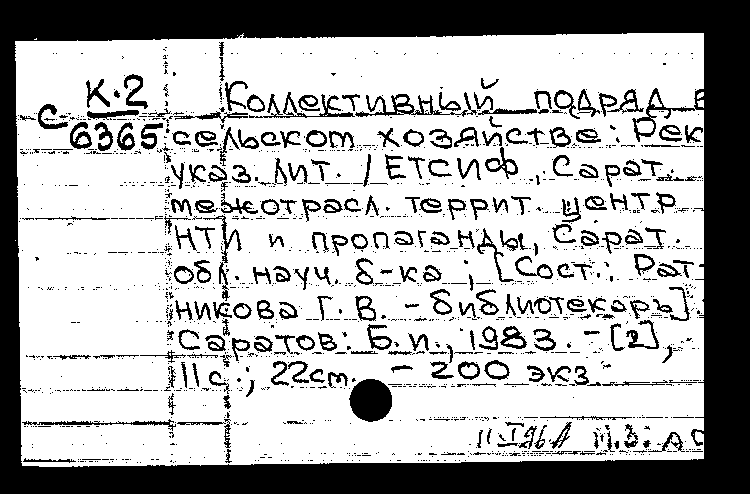 К.2
С 6365
Коллективный подряд в
сельском хозяйстве: Рек
указ. лит. / ЕТСИФ, Сарат.
межотрасл. террит. центр
НТИ и пропаганды, Сарат.
обл. науч. б-ка ; [Сост.: Рат-
никова Г. В. – библиотекарь].
Саратов: Б. и., 1983. – [2],
11 с.; 22см. – 200 экз.
М.З: ДС